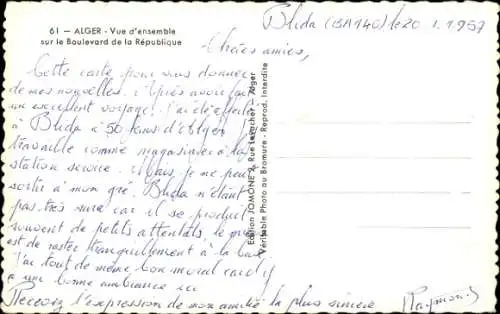 61 — ALGER - Vue d'ensemble
sur le Boulevard de la République
Blida (BA140) le 20.1.1957
Chères amies,
Cette carte pour vous donner
de mes nouvelles. Après avoir fait
un excellent voyage, j'ai été affecté
à Blida à 50 kms d'Alger
travaille comme magasinier à la
station service. Mais je ne peux
sortir à mon gré. Blida n'étant
pas très sure car il se produit
souvent de petits attentats, le
est de rester tranquillement à la base
J'ai tout de même bon moral car il y
a une bonne ambiance ici
Recevez l'expression de mon amitié la plus sincère
Raymond
Edition JOMONE 2, Rue Alger
Véritable Photo au Bromure - Reprod. Interdite